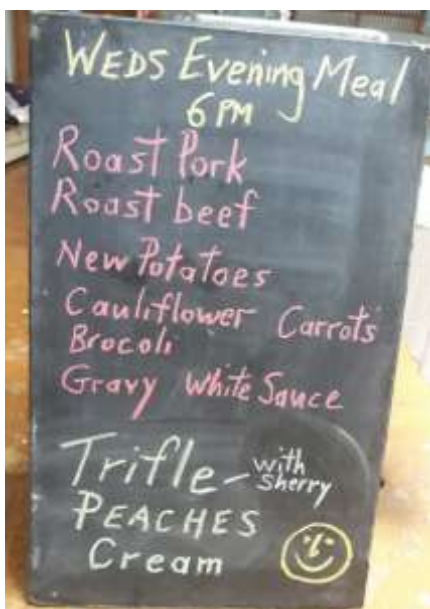 WEDS Evening Meal
6 PM
Roast Pork
Roast beef
New Potatoes
Cauliflower Carrots
Brocoli
Gravy White Sauce
Trifle - with Sherry
PEACHES
Cream